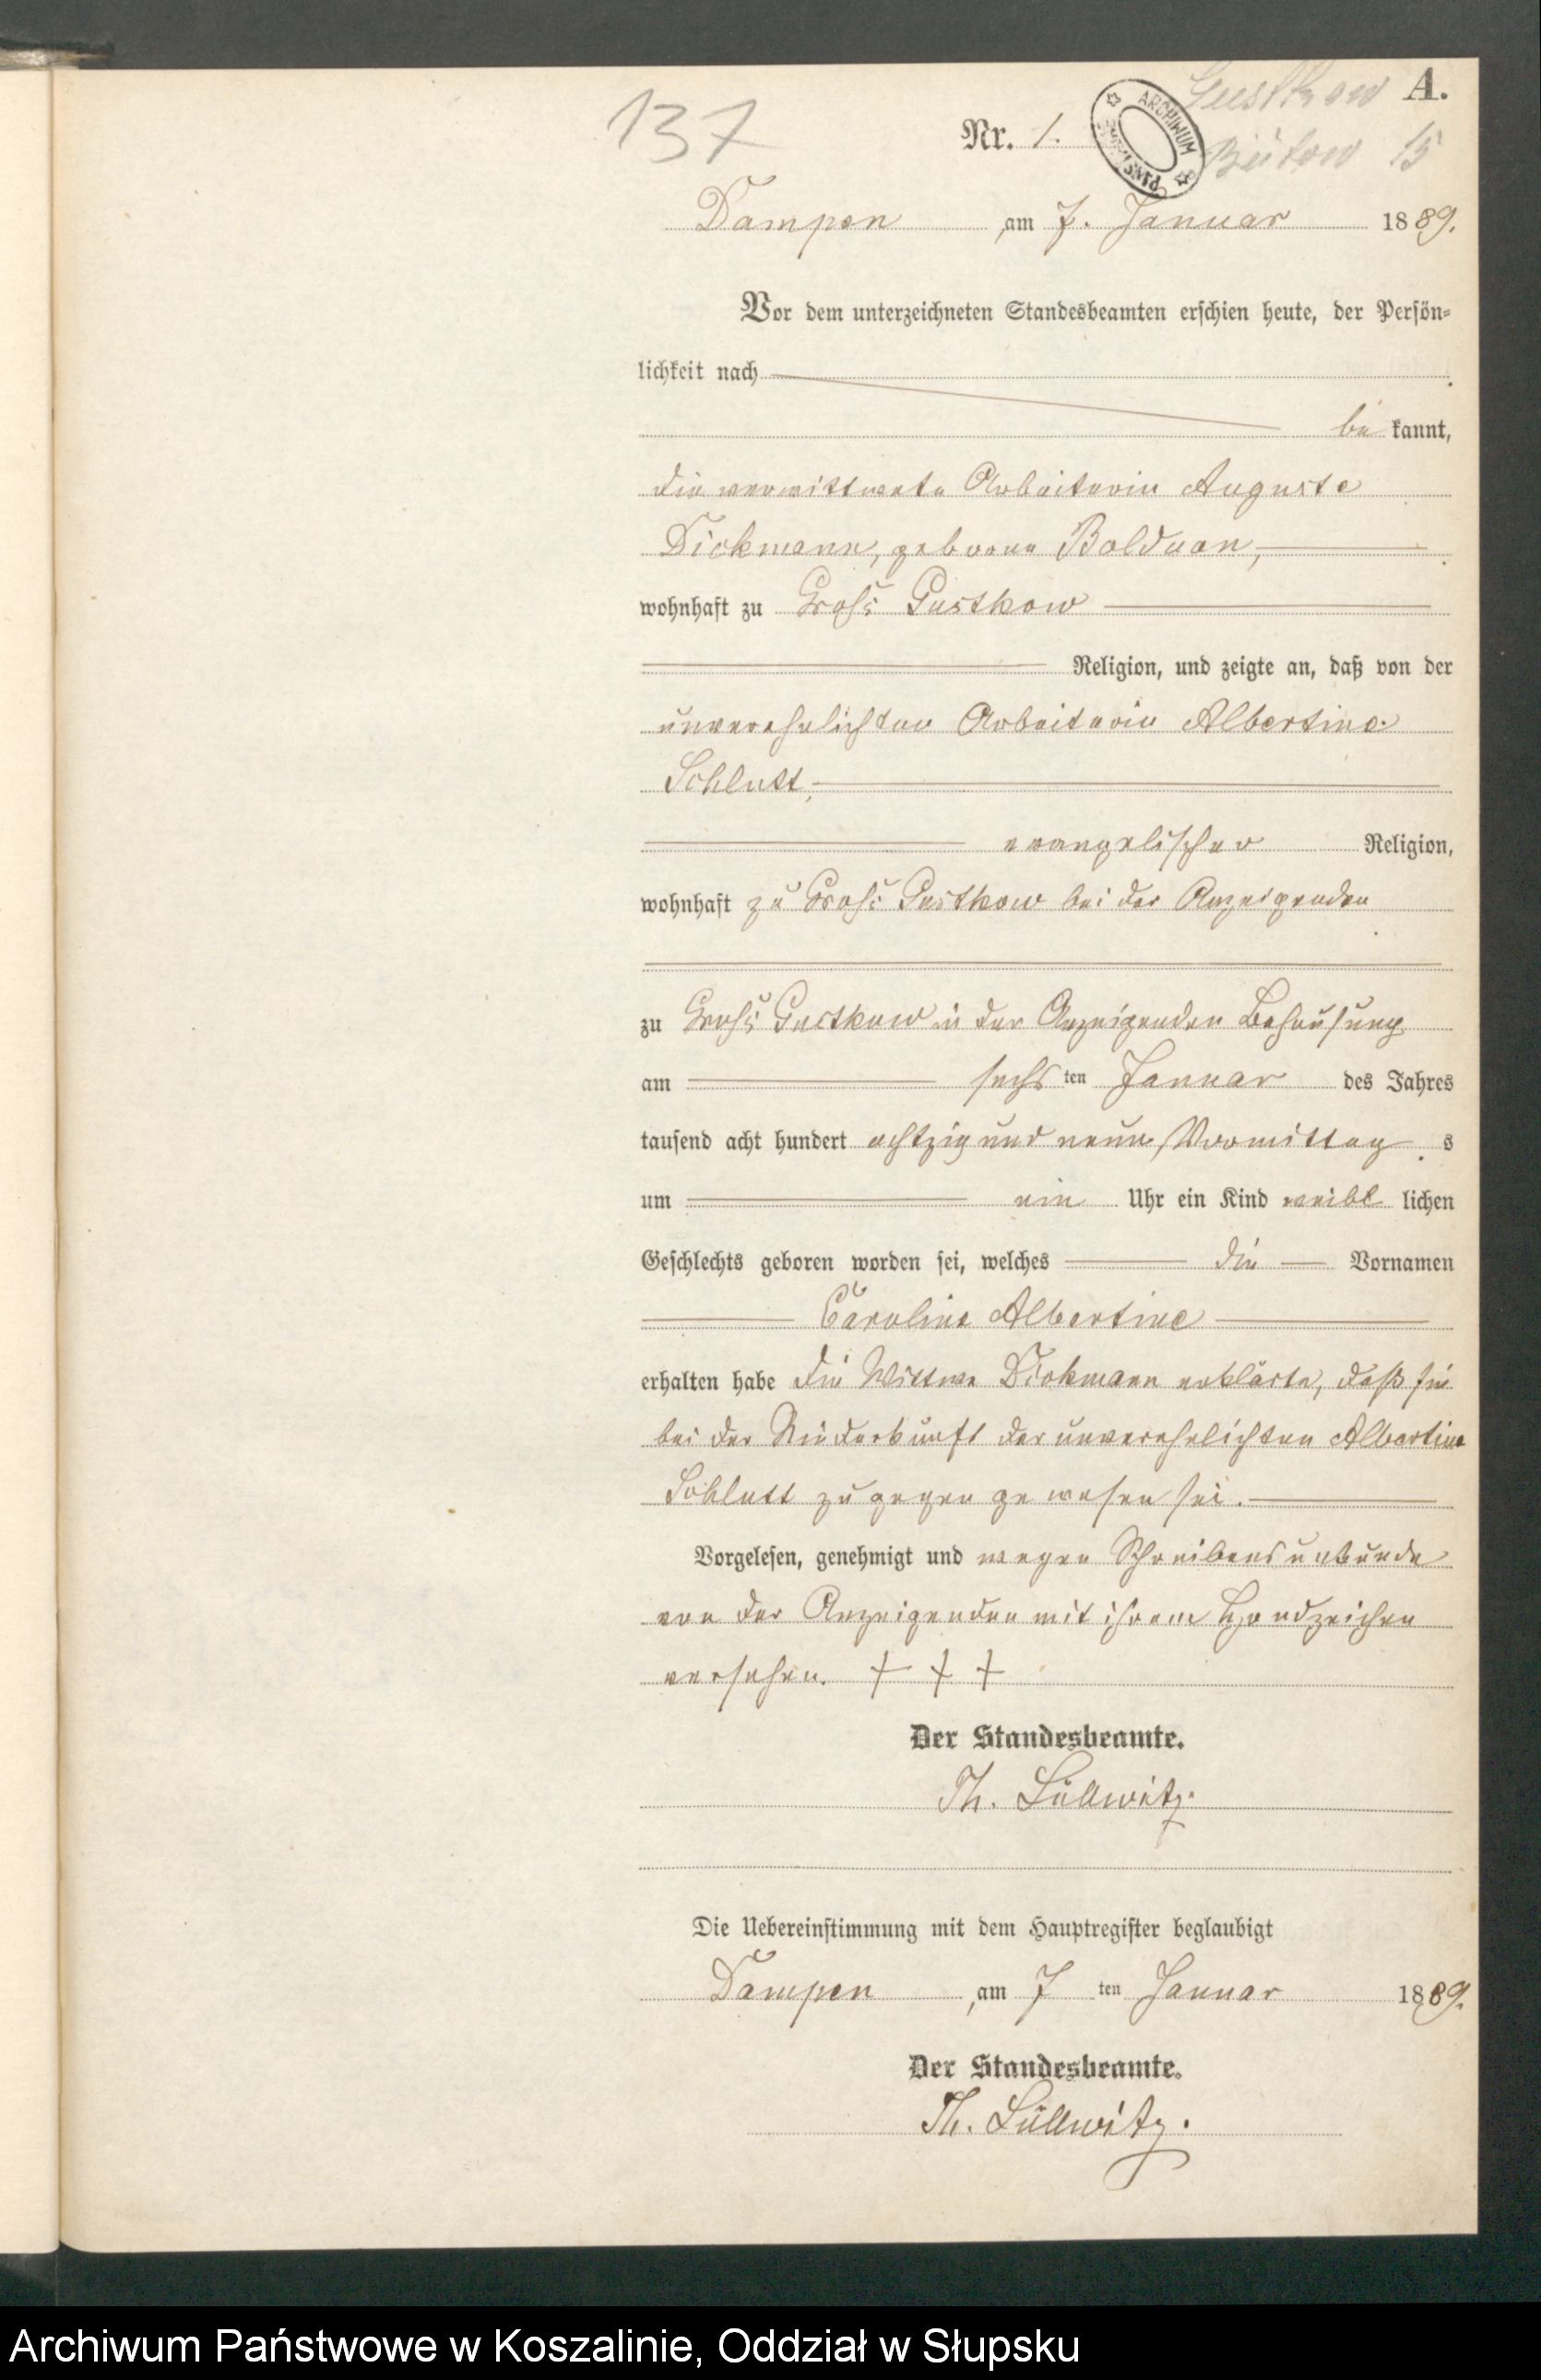 137
Gustkow A.
Nr. 1.
ARCHIWUM PAŃSTWOWE
Bütow 15
Dampen, am 7. Januar 1889.
Vor dem unterzeichneten Standesbeamten erschien heute, der Persön-
lichkeit nach
be kannt,
die verwittwete Arbeiterin Auguste
Dickmann, geborne Balduan,
wohnhaft zu Groß Gustkow
Religion, und zeigte an, daß von der
unverehelichten Arbeiterin Albertine
Schlutt,
evangelischer Religion,
wohnhaft zu Groß Gustkow bei der Anzeigenden
zu Groß Gustkow in der Anzeigenden Behausung
am sechsten Januar des Jahres
tausend acht hundert achtzig und neun Vormittag s
um ein Uhr ein Kind weibl lichen
Geschlechts geboren worden sei, welches die Vornamen
Caroline Albertine
erhalten habe die Wittwe Dickmann erklärte, daß sie
bei der Niederkunft der unverehelichten Albertine
Schlutt zugegen gewesen sei.
Vorgelesen, genehmigt und wegen Schreibensunkunde
von der Anzeigenden mit ihrem Handzeichen
versehen. + + +
Der Standesbeamte.
Th. Lüllwitz.
Die Uebereinstimmung mit dem Hauptregister beglaubigt
Dampen, am 7 ten Januar 1889.
Der Standesbeamte.
Th. Lüllwitz.
Archiwum Państwowe w Koszalinie, Oddział w Słupsku